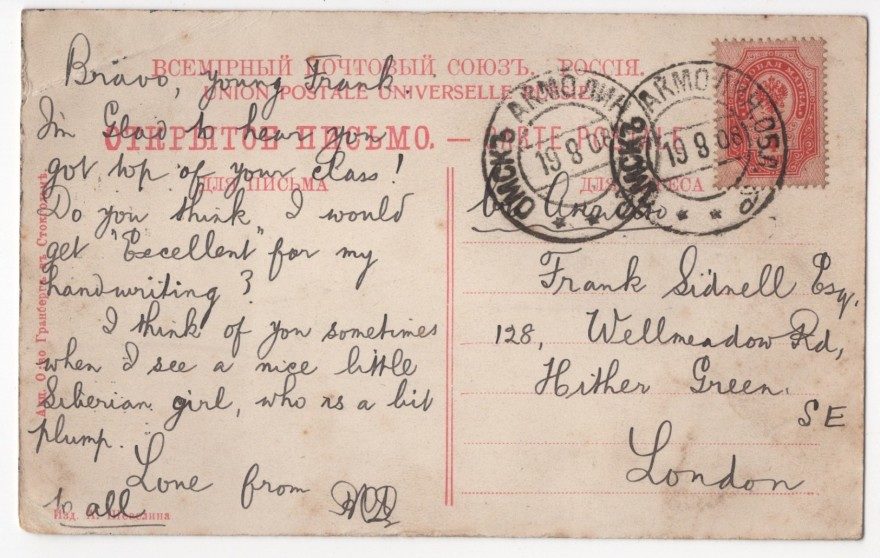 ВСЕМІРНЫЙ ПОЧТОВЫЙ СОЮЗЪ. РОССІЯ.
UNION POSTALE UNIVERSELLE.
ОТКРЫТОЕ ПИСЬМО. —
ДЛЯ ПИСЬМА
Bravo, young Frank.
I'm Glad to hear you
got top of your class!
Do you think I would
get "Excellent" for my
handwriting?
I think of you sometimes
when I see a nice little
Siberian girl, who is a bit
plump.
Love from
to all
ОМСКЪ АКМОЛИН
19 8 08
ОМСКЪ АКМОЛ ОБЛ
19 8 08
Frank Sidnell Esq.
128, Wellmeadow Rd,
Hither Green.
SE
London
Гранбергъ въ Стокгольмѣ
Изд.